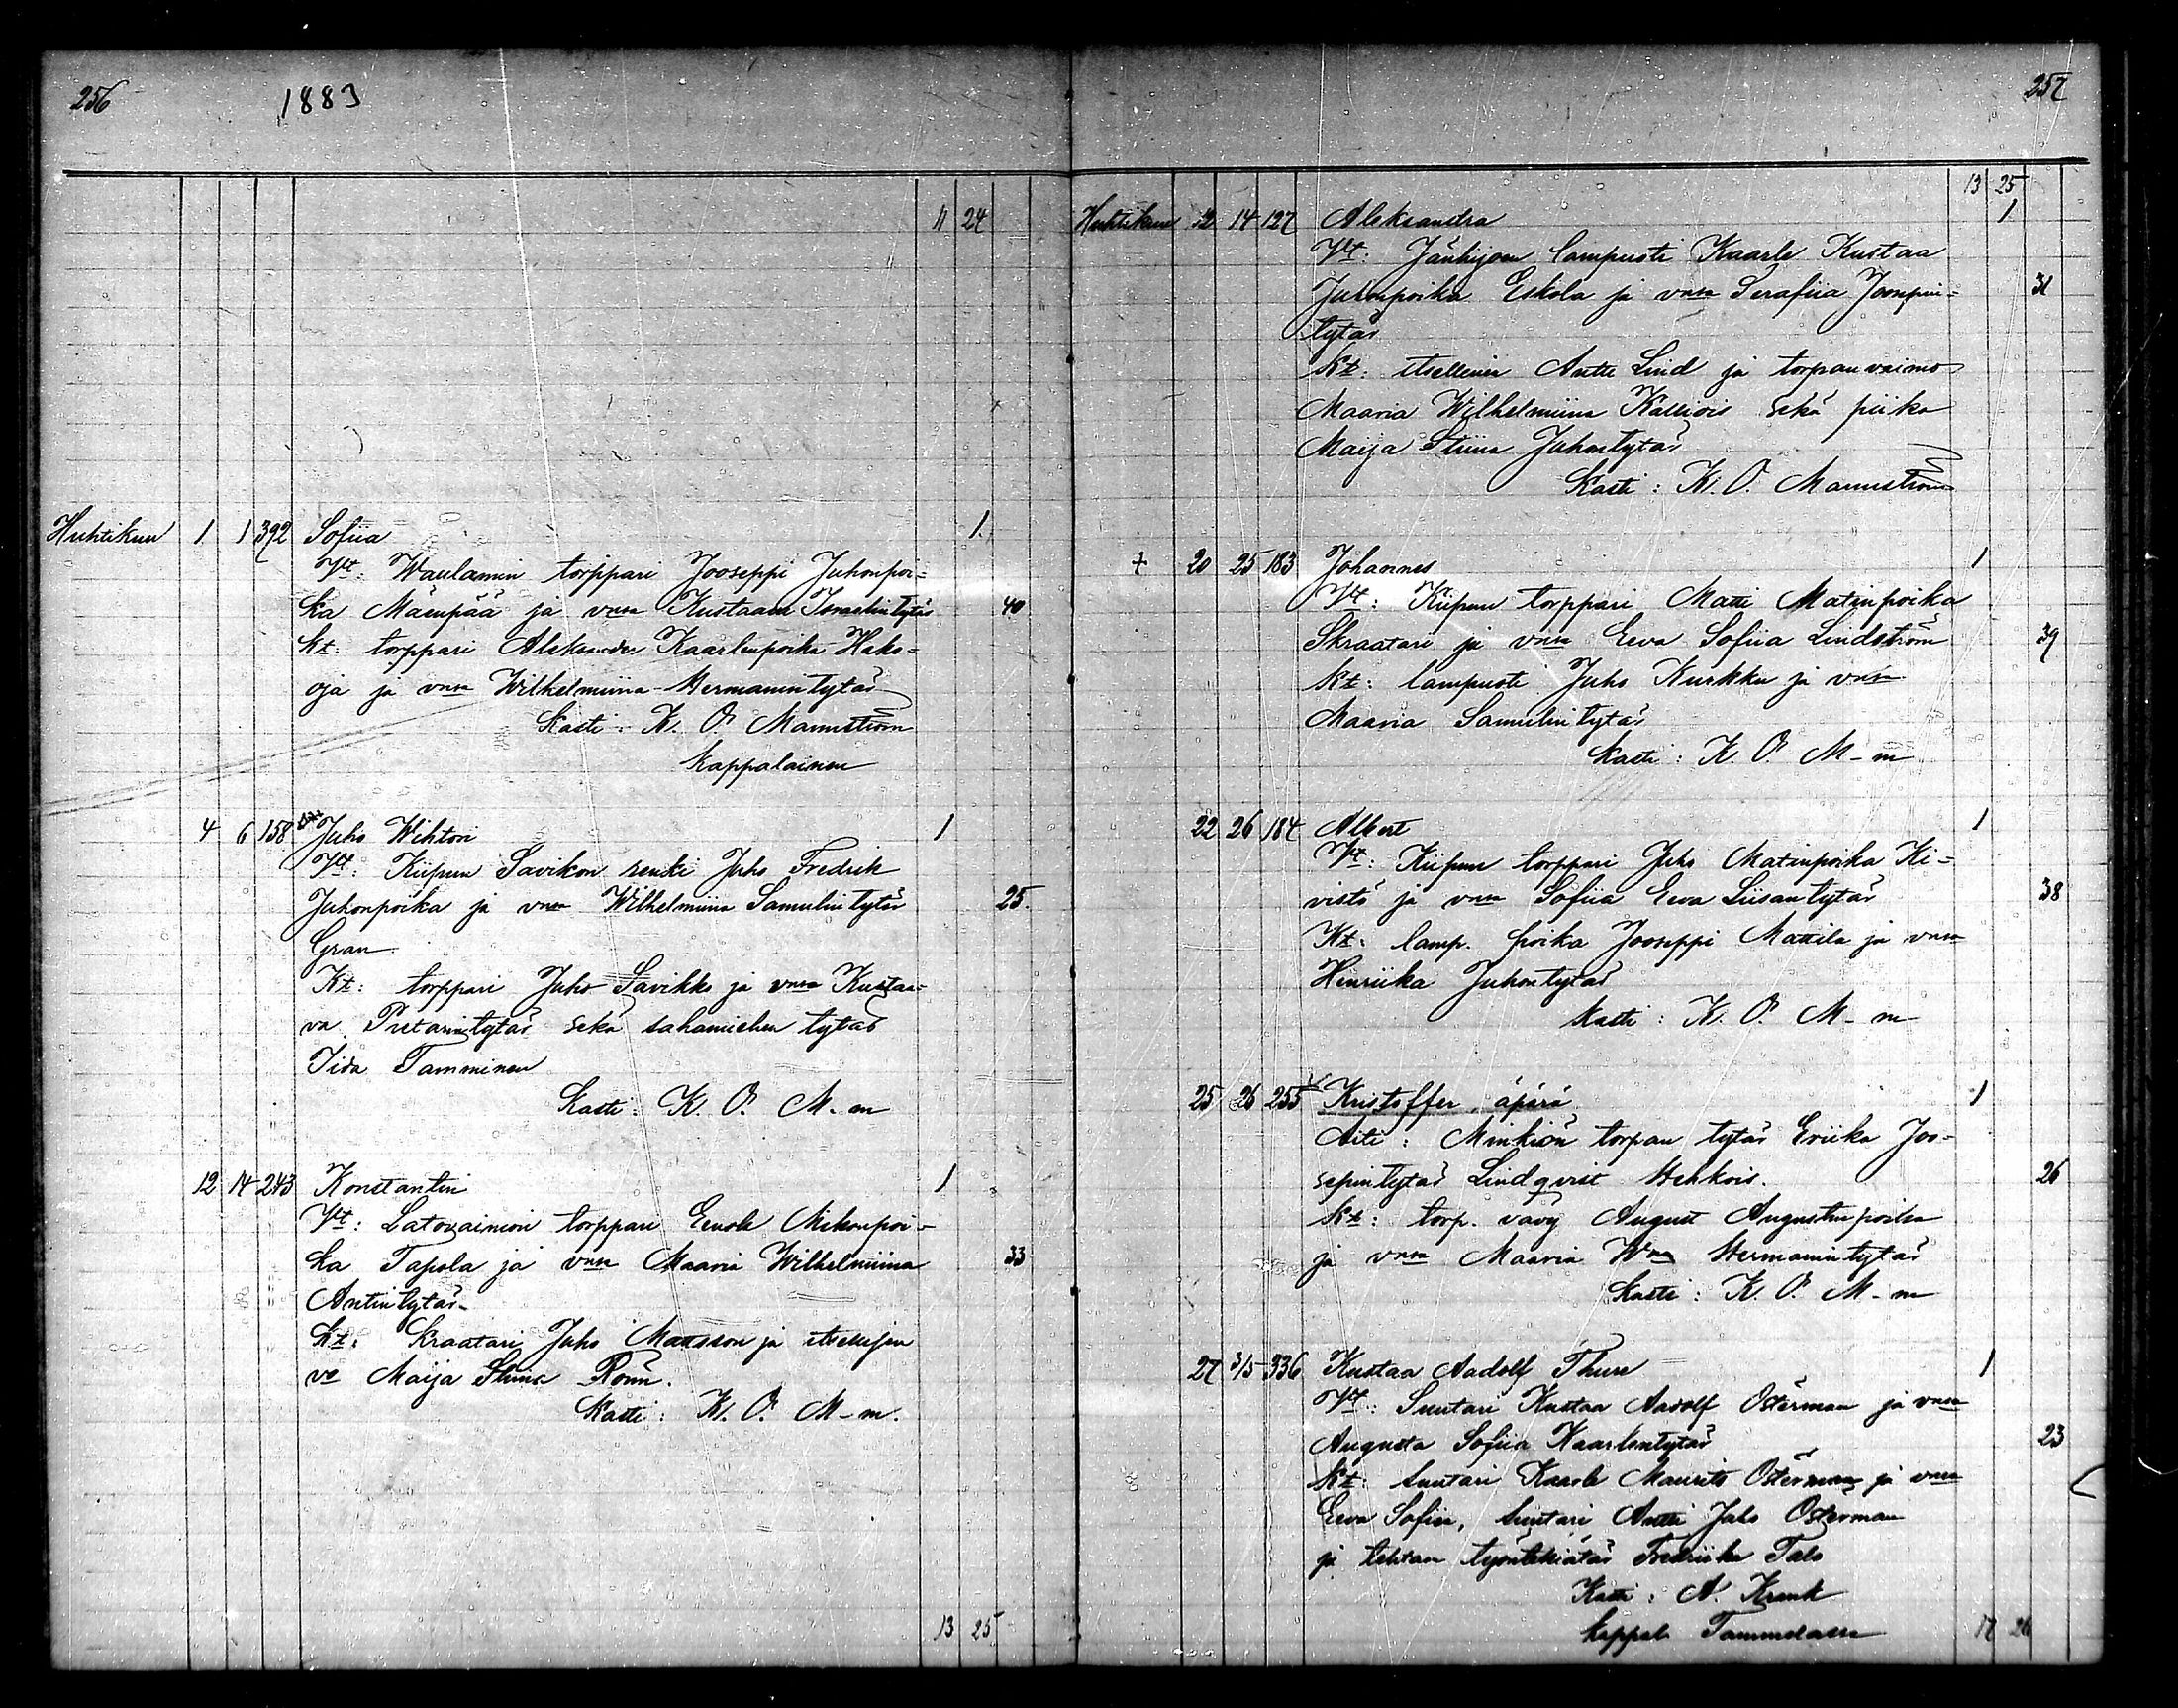 256 1883
11 24
Huhtikuu 1 1 392 Sofiia 1
Vt: Waulamin torppari Jooseppi Juhonpoi-
ka Mäenpää ja vmsa Kustaava Israelintytär 40
Kt: torppari Aleksander Kaarlenpoika Hako-
oja ja vmsa Wilhelmiina Hermanintytär
Kasti: K. O. Mannström
kappalainen
4 6 158 Juho Wihtori 1
Vt: Kiipun Savikon renki Juho Fredrik
Juhonpoika ja vmsa Wilhelmiina Samulintytär 25.
Gran
Kt: torppari Juho Savikko ja vmsa Kustaa-
va tytär sekä sahamiehen tytär
Iida Tamminen
Kasti: K. O. M-m
12 14 243 Konstantin 1
Vt: Latovainion torppari Eenok Mikonpoi-
ka Tapola ja vmsa Maaria Wilhelmiina 33
Antintytär
Kt: Kraatari Juho Matsson ja itsellisen
vo Maija Stiina Rönn.
Kasti: K. O. M-m.
13 25
257
13 25
Huhtikuu 12 14 127 Aleksandra 1
Vt: Jänhijoen lampuoti Kaarle Kustaa
Juhonpoika Eskola ja vmsa Serafiia Joosepin- 31
tytär
Kt: itsellinen Antti Lind ja torpanvaimo
Maaria Wilhelmiina Kalliois sekä piika
Maija Stiina Juhontytär
Kasti: K. O. Mannström
+ 20 25 183 Johannes 1
Vt: Kiipun torppari Matti Matinpoika
Skraatari ja vmsa Eeva Sofiia Lindström 39
Kt: lampuoti Juho Kurkku ja vmsa
Maaria Samulintytär
Kasti: K. O. M-m
22 26 184 Albert 1
Vt: Kiipun torppari Juho Matinpoika Ki-
vistö ja vmsa Sofiia Eeva Liisantytär 38
Kt: lamp. poika Jooseppi Mattila ja vmsa
Henriika Juhontytär
Kasti: K. O. M-m
25 26 255 Kristoffer, äpärä 1
Äiti: Minkiön torpan tytär Eriika Joo-
sepintytär Lindqvist Hehkois. 26
Kt: torp. vävy August Augustinpoika
ja vmsa Maaria Wma Hermanintytär
Kasti: K. O. M-m
27 3/5 336 Kustaa Aadolf Thure 1
Vt: Suutari Kustaa Aadolf Österman ja vmsa
Augusta Sofiia Kaarlentytär 23
Kt: Suutari Kaarle Maurits Österman ja vmsa
Eeva Sofiia, Suutari Antti Juho Österman
ja tehtaan työntekiätär Fredriika Talo
Kasti: A. Krank
kappal. Tammelassa
17 26